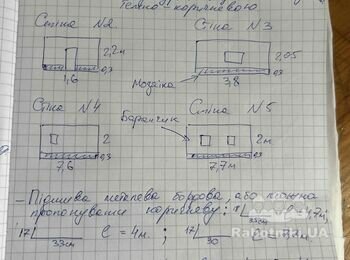 Темно - коричневою
Стіна №2
Стіна №3
2,2м
0,3
1,6
2,05
0,3
3,8
Мозаїка
Стіна №4
Стіна №5
2
0,3
7,6
Баранчик
2м
0,3
7,7м
- Підшива металева бордова, або можна
пропонувати коричневу:
17
33см
ℓ = 4м. ;
17
30